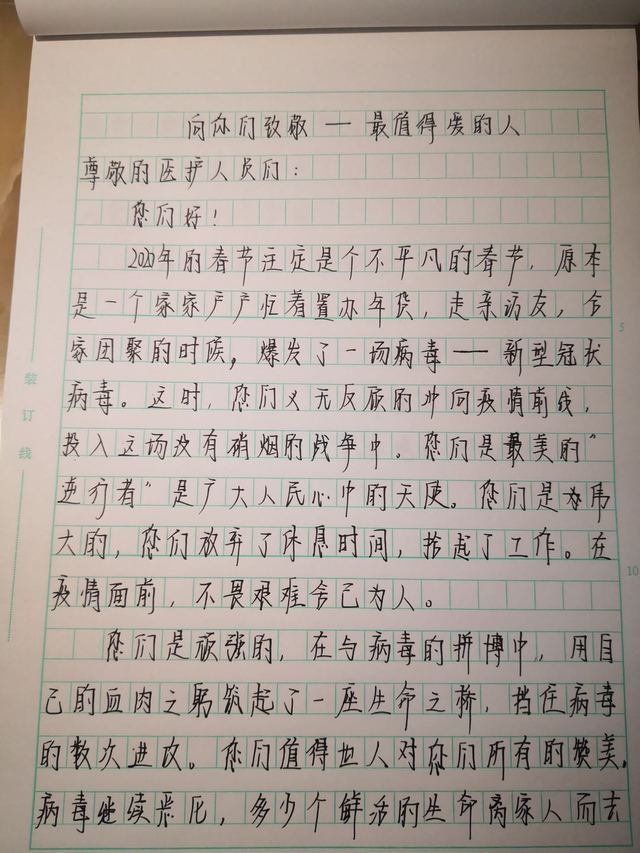 向你们致敬——最值得爱的人
尊敬的医护人员们：
您们好！
2020年的春节注定是个不平凡的春节，原本
是一个家家户户忙着置办年货，走亲访友，合
家团聚的时候，爆发了一场病毒——新型冠状
病毒。这时，您们义无反顾的冲向疫情前线，
投入这场没有硝烟的战争中。您们是最美的“
逆行者”是广大人民心中的天使。您们是伟
大的，您们放弃了休息时间，拾起了工作。在
疫情面前，不畏艰难舍己为人。
您们是顽强的，在与病毒的拼博中，用自
己的血肉之躯筑起了一座生命之桥，挡住病毒
的数次进攻。您们值得世人对您们所有的赞美。
病毒继续恶化，多少个鲜活的生命离家人而去
装
订
线
5
10